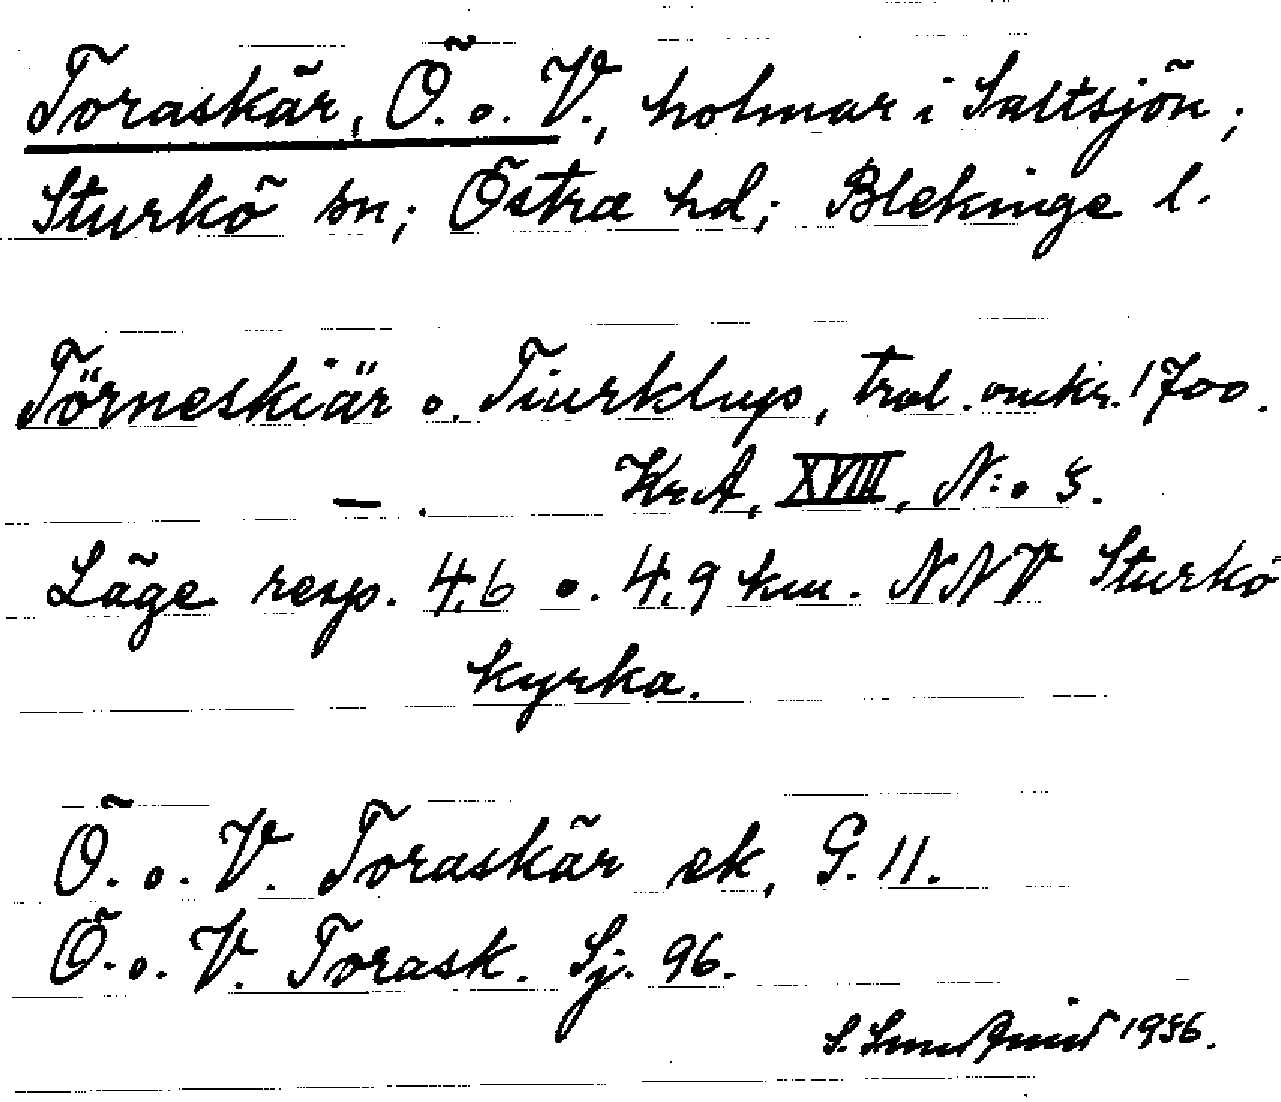 Toraskär, Ö. o. V., holmar i Saltsjön;
Sturkö sn; Östra hd; Blekinge l.
Törneskiär o. Tiurklyp, trol. omkr. 1700.
— . KrA, XVIII, N:o 5.
Läge resp. 4,6 o. 4,9 km. NNV Sturkö
kyrka.
Ö. o. V. Toraskär ek, G. 11.
Ö. o. V. Torask. Sj. 96.
S. 1956.